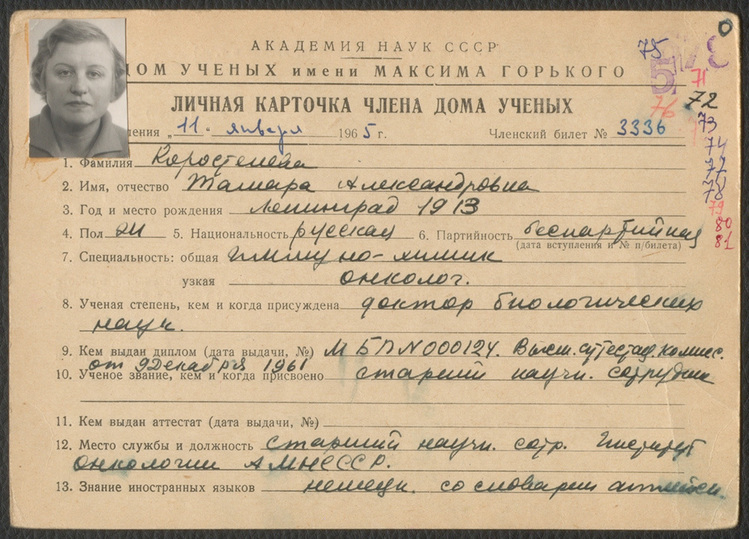 АКАДЕМИЯ НАУК СССР
ДОМ УЧЕНЫХ имени МАКСИМА ГОРЬКОГО
ЛИЧНАЯ КАРТОЧКА ЧЛЕНА ДОМА УЧЕНЫХ
„11„ января 1965 г. Членский билет № 3336
1. Фамилия Коростелева
2. Имя, отчество Тамара Александровна
3. Год и место рождения Ленинград 1913
4. Пол 5. Национальность русская 6. Партийность беспартийная
(дата вступления и № п/билета)
7. Специальность: общая иммуно-химик
узкая онколог.
8. Ученая степень, кем и когда присуждена доктор биологических
наук.
9. Кем выдан диплом (дата выдачи, №) М БЛ N 000124. Высш. аттестац. комисс.
от 9 Декабря 1961
10. Ученое звание, кем и когда присвоено старший научн. сотрудник
11. Кем выдан аттестат (дата выдачи, №)
12. Место службы и должность старший научн. сотр. Институт
онкологии АМН СССР.
13. Знание иностранных языков немецк. со словарем английск.
75
5
71
76 72
73
74
77
78
79
80
81